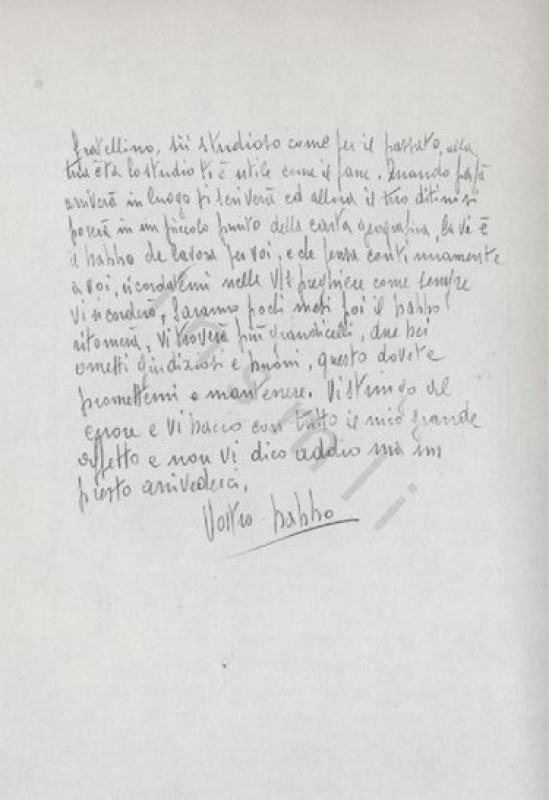 fratellino, sii studioso come per il passato, alla
tua età lo studio ti è utile come il pane. Quando papà
arriverà in luogo vi scriverà ed allora il tuo ditino si
poserà in un piccolo punto della carta geografica, la vi è
il babbo che lavora per voi, e che pensa continuamente
a voi, ricordatemi nelle Vs preghiere come sempre
vi ricorderò, saranno pochi mesi poi il babbo
ritornerà, vi troverà più grandicelli, due bei
ometti giudiziosi e buoni, questo dovete
promettermi e mantenere. Vi stringo al
cuore e vi bacio con tutto il mio grande
affetto e non vi dico addio ma un
presto arrivederci.
Vostro babbo
ismli